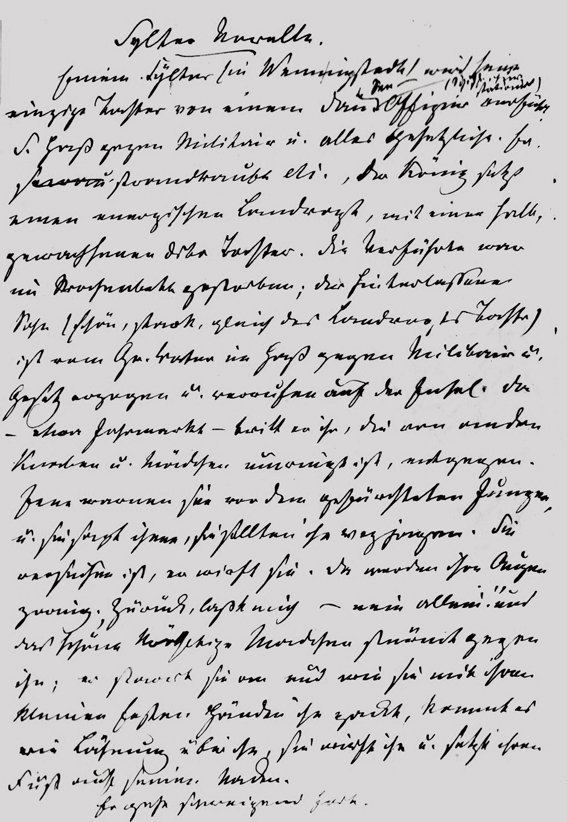 Sylter Novelle.
Einem Sylter (in Wenningstedt) wird seine
einzige Tochter von einem Dän. Offizier verführt.
S. Haß gegen Militair u. alles Gesetzliche. Er
Strandraub etc., der König setzt
einen energischen Landvogt, mit einer halb-
gewachsenen Tochter. Die Verführte war
im Wochenbett gestorben; der hinterlassene
Sohn (schön, stark, gleich des Landvogts Tochter)
ist vom Gr. Vater in Haß gegen Militair u.
Gesetz erzogen u. verrufen auf der Insel. Da
– etwa Jahrmarkt – tritt er ihr, die von andern
Knaben u. Mädchen umringt ist, entgegen.
Jene warnen sie vor dem gefürchteten Jungen,
u. sie sagt ihnen, sie sollten ihn wegjagen. Sie
versuchen es, er wirft sie. Da werden ihre Augen
zornig. Zurück, laßt mich – nein allein!" und
das schöne Mädchen stürmt gegen
ihn; er starrt sie an und wie sie mit ihren
kleinen festen Händen ihn packt, kommt es
wie Lähmung über ihn, sie wirft ihn u. setzt ihren
Fuß auf seinen Nacken.
Er geht schweigend fort.